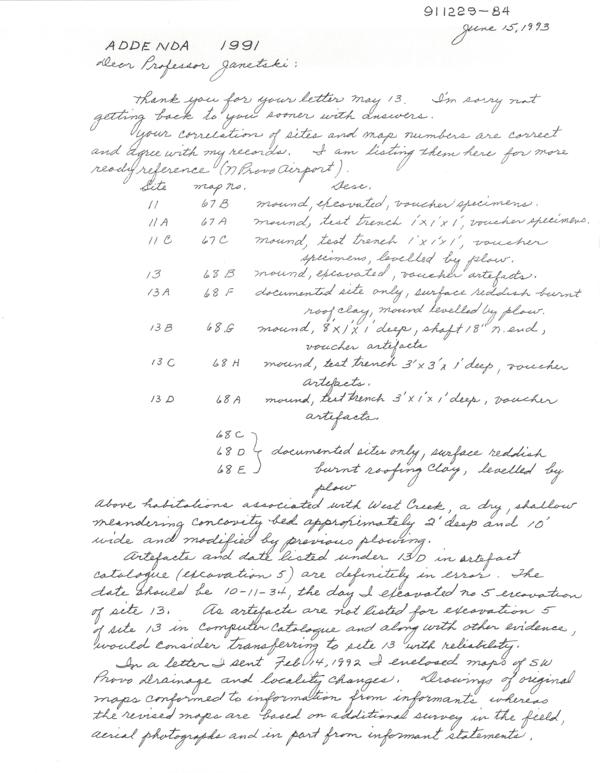 911229-84
June 15, 1993
ADDENDA 1991
Dear Professor Janetski:
Thank you for your letter May 13. I'm sorry not
getting back to you sooner with answers.
Your correlation of sites and map numbers are correct
and agree with my records. I am listing them here for more
ready reference (N Provo Airport).
Site map no. Desc.
11 67B mound, excavated, voucher specimens.
11A 67A mound, test trench 1'x1'x1', voucher specimens.
11C 67C mound, test trench 1'x1'x1', voucher
specimens, levelled by plow.
13 68B mound, excavated, voucher artefacts.
13A 68F documented site only, surface reddish burnt
roof clay, mound levelled by plow.
13B 68G mound, 8'x1'x1' deep, shaft 18" n. end,
voucher artefacts
13C 68H mound, test trench 3'x3'x1' deep, voucher
artefacts.
13D 68A mound, test trench 3'x1'x1' deep, voucher
artefacts.
68C
68D documented sites only, surface reddish
68E burnt roofing clay, levelled by
plow
Above habitations associated with West Creek, a dry, shallow
meandering concavity bed approximately 2' deep and 10'
wide and modified by previous plowing.
Artefacts and date listed under 13D in artefact
catalogue (excavation 5) are definitely in error. The
date should be 10-11-34, the day I excavated no 5 excavation
of site 13. As artefacts are not listed for excavation 5
of site 13 in computer catalogue and along with other evidence,
would consider transferring to site 13 with reliability.
In a letter I sent Feb 14, 1992 I enclosed maps of SW
Provo Drainage and locality changes. Drawings of original
maps conformed to information from informants whereas
the revised maps are based on additional survey in the field,
aerial photographs and in part from informant statements.